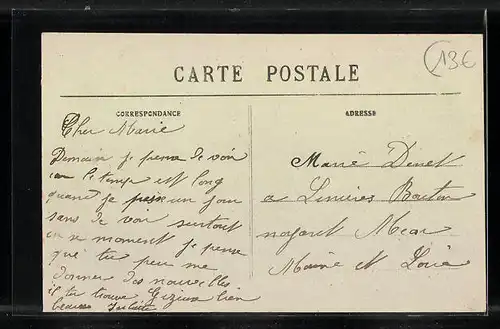 13€
CARTE POSTALE
CORRESPONDANCE
ADRESSE
Cher Marie
Demain je pense te voir
car le temps est long
quand je passe un jour
sans te voir surtout
en ce moment je pense
que tu peu me
donner des nouvelles
il te trouve bien
Marie Denet
a Linières Bouton
Maine et Loire